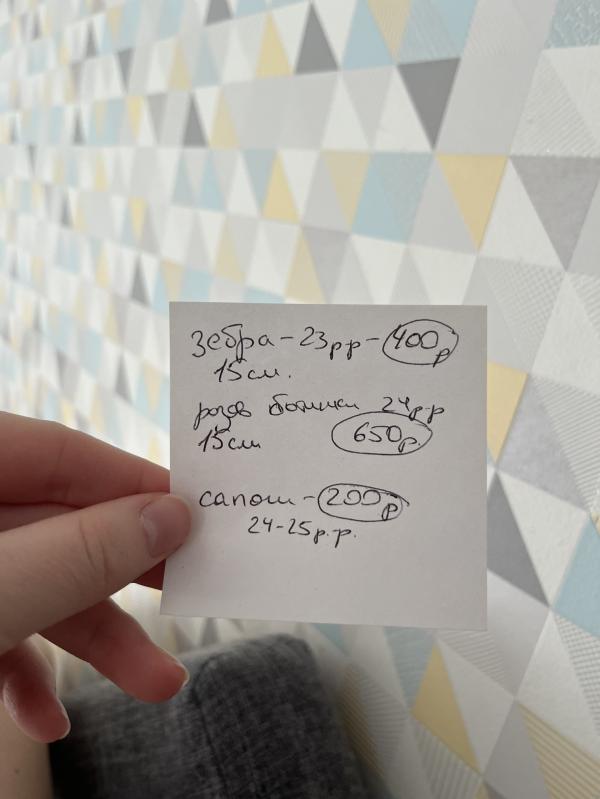 зебра - 23рр - 400р
15см.
розов ботинки 24рр
15см 650р
сапоги - 200р
24-25р.р.